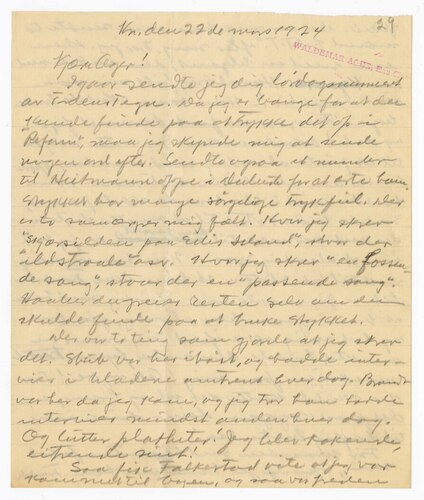 Kr. den 22de mars 1924
29
WALDEMAR AGER
Kjære Ager!
Igaar sendte jeg dig lördagsnummeret
av Tidens Tegn. Da jeg er bange for at du
kunde finde paa at trykke det op i
"Reform", maa jeg skynde mig at sende
nogen ord efter. Sendte ogsaa et nummer
til Heitmann oppe i Duluth for at erte ham.
Stykket har mange sörgelige trykfeil. Der
er to som ergrer mig fælt. Hvor jeg skrev
"skjærsilden paa Ellis Island", staar der
"ildstraale" osv. Hvor jeg skrev "en
de sang", staar der en "passende sang".
resten selv om du
skulde finde paa at bruke stykket.
Der var to ting som gjorde at jeg skrev
det. Stub var her ihöst, og hadde inter-
vier i bladene omtrent hver dag. Brandt
var her da jeg kom, og jeg tror han hadde
intervier mindst andenhver dag.
Og bitter platheter. Jeg blev rasende,
sint!
Saa fik Falkestad vite at jeg var
kommet til byen, og saa var freden